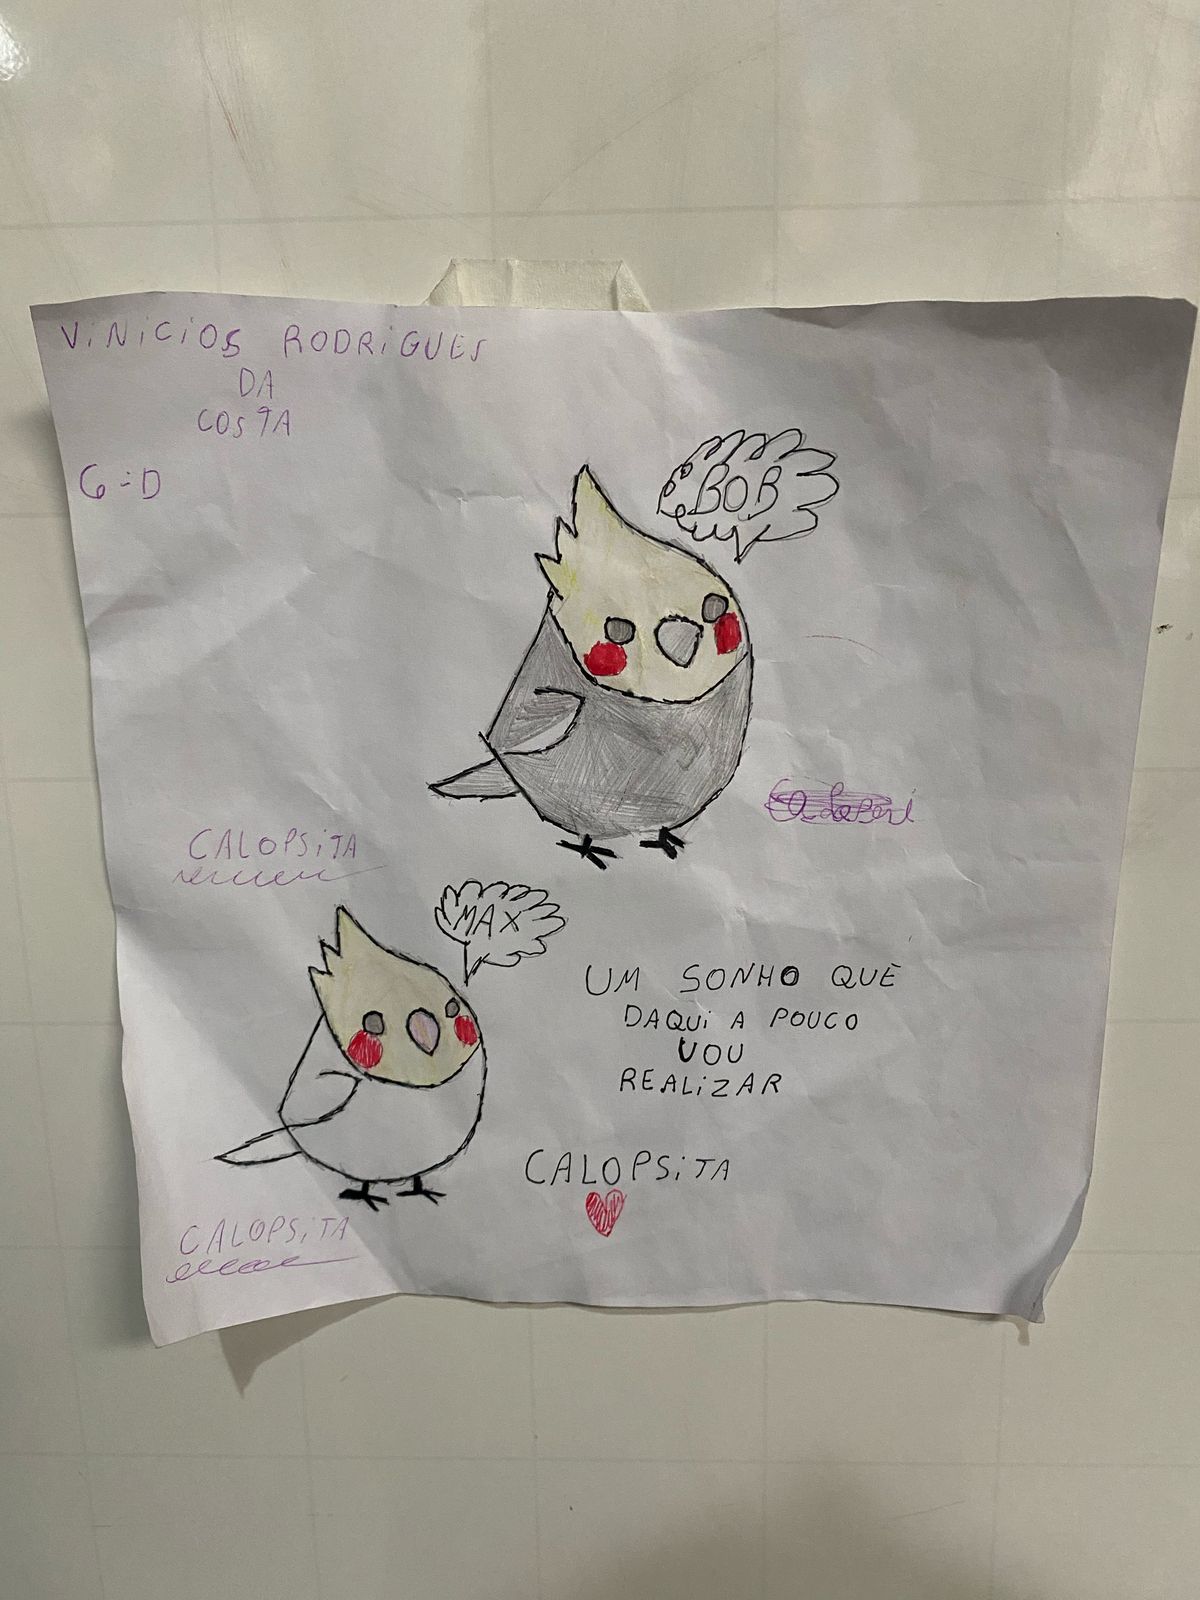 ViNiCiOS RODRiGUES
DA
COSTA
6=D
BOB
CALOPSiTA
MAX
UM SONHO QUE
DAQUi A POUCO
VOU
REALiZAR
CALOPSiTA
CALOPSiTA